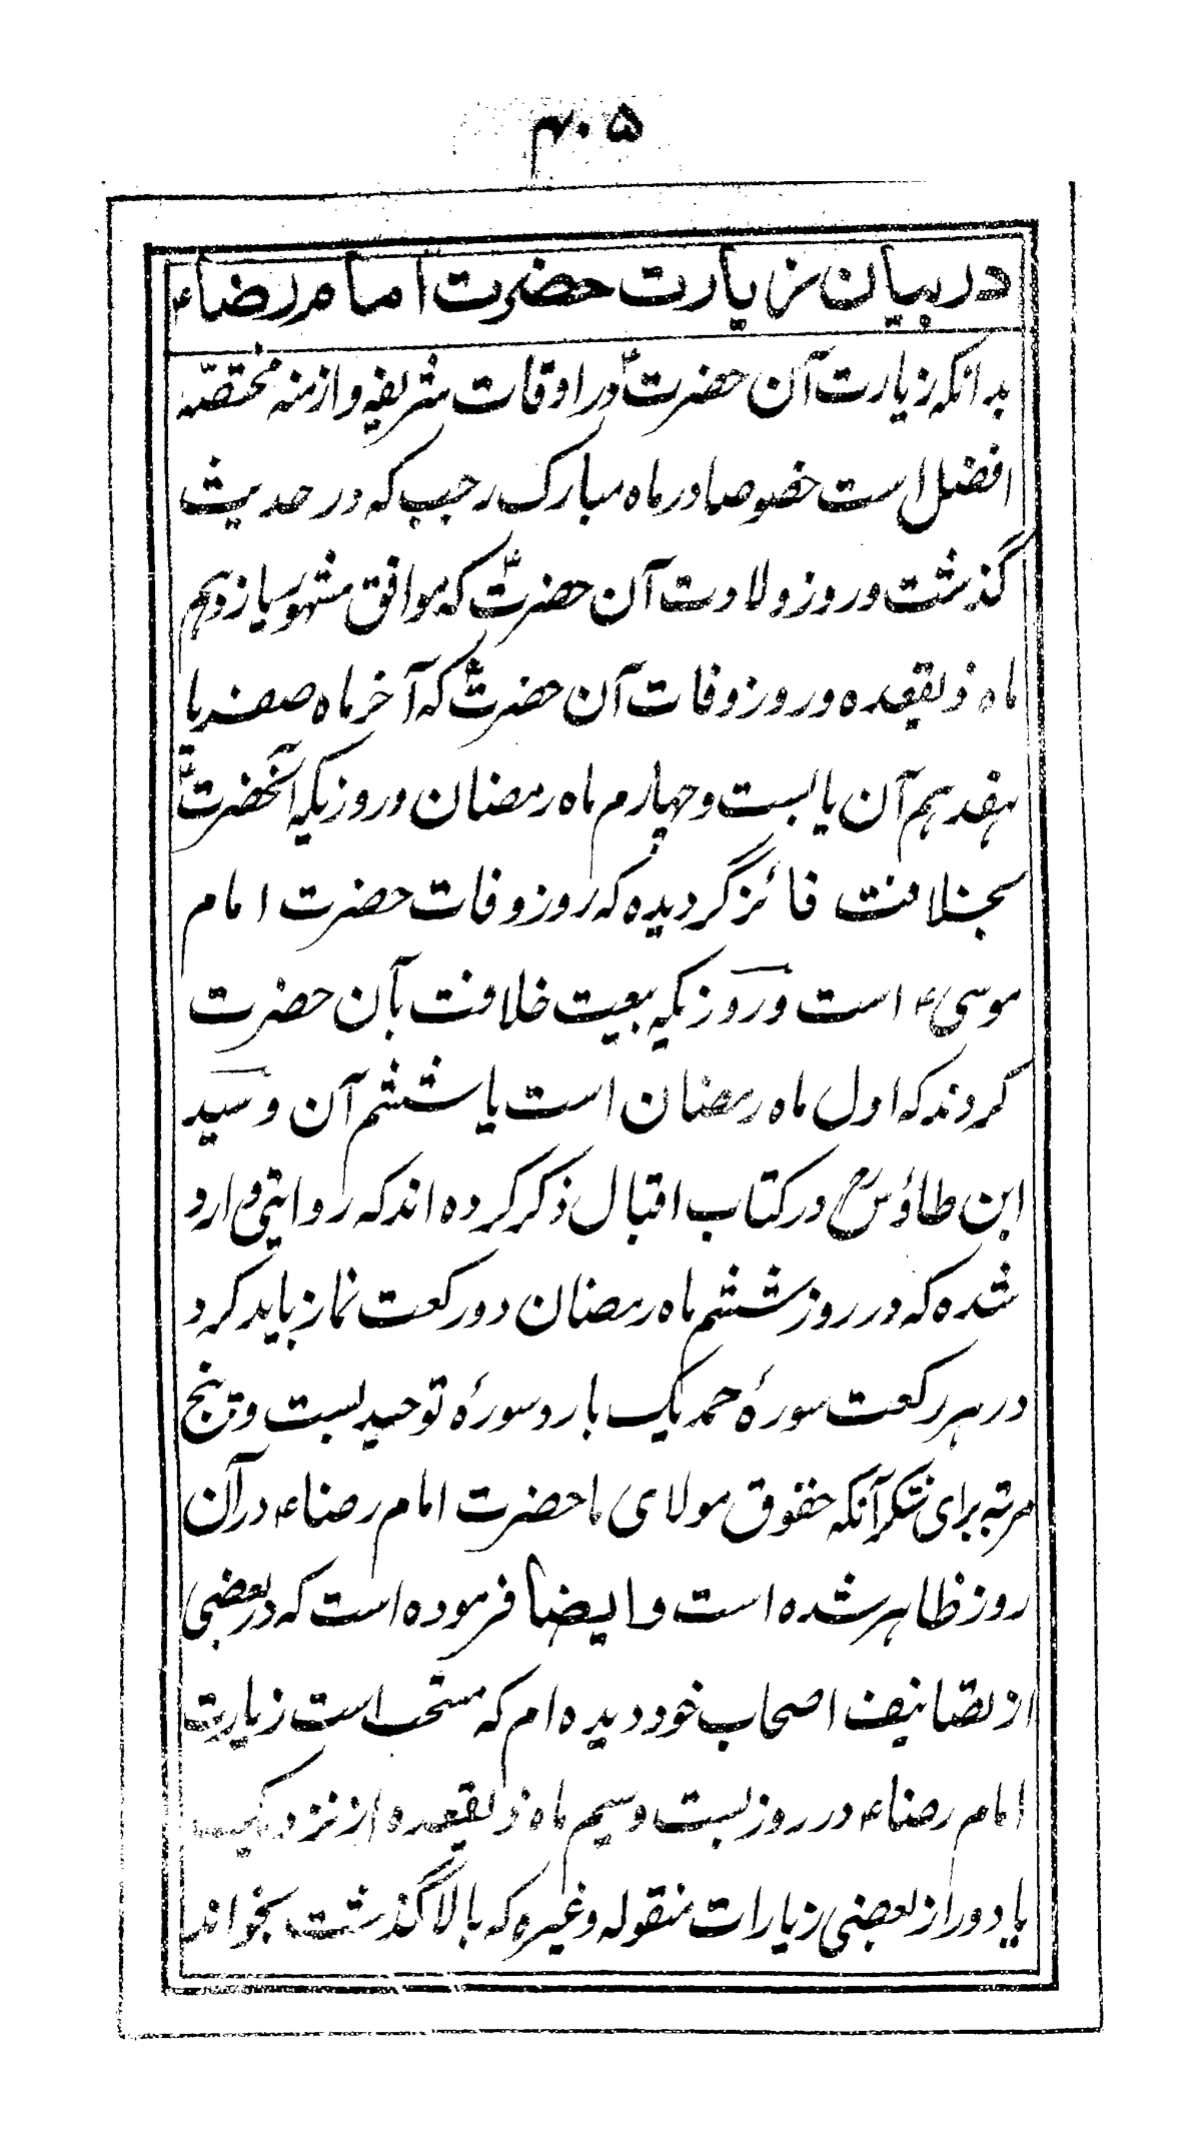 ۴۰۵
در بیان زیارت حضرت امام رضاء
بدانکه زیارت آن حضرتؑ در اوقات شریفه و ازمنه مختصّه
افضل است خصوصا در ماه مبارک رجب که در حدیث
گذشت و روز ولادت آن حضرتؑ که موافق مشهور یازدهم
ماه ذیقعده و روز وفات آن حضرتؑ که آخر ماه صفر یا
هفدهم آن یا بست و چهارم ماه رمضان و روزیکه آنحضرتؑ
بخلافت فائز گردیده که روز وفات حضرت امام
موسیء است و روزیکه بیعت خلافت بآن حضرت
کردند که اول ماه رمضان است یا ششم آن و سید
ابن طاؤسؒ در کتاب اقبال ذکر کرده اند که روایتی وارد
شده که در روز ششم ماه رمضان دو رکعت نماز باید کرد
در هر رکعت سورهٔ حمد یک بار و سورهٔ توحید بست و پنج
مرتبه برای شکر آنکه حقوق مولای ما حضرت امام رضاء در آن
روز ظاهر شده است و ایضا فرموده است که در بعضی
از تصانیف اصحاب خود دیده ام که مستحب است زیارت
امام رضاء در روز بست و سیم ماه ذیقعده از نزدیک
یا دور از بعضی زیارات منقوله و غیره که بالا گذشت بخواند